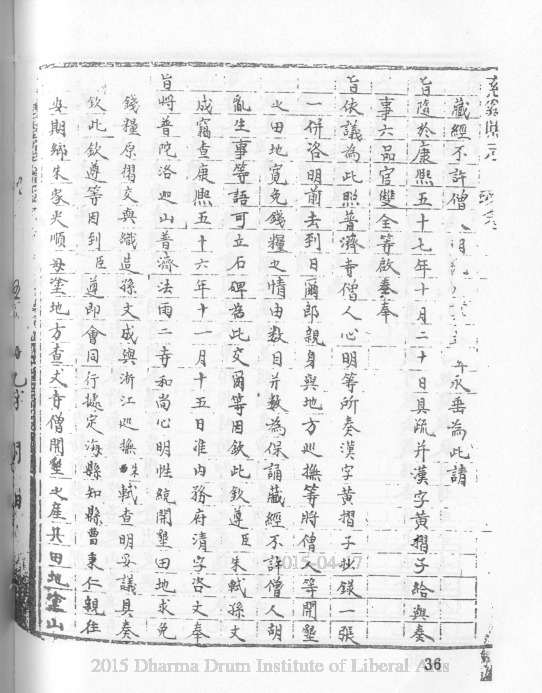 藏經不許僧
年永垂為此請
旨隨於康熙五十七年十月二十日具疏并漢字黃摺子給與奏
事六品官雙全等啟奏奉
旨依議為此照普濟寺僧人心明等所奏漢字黃摺子抄錄一張
一併洛明前去到日爾郎親身與地方巡撫等將僧人等開墾
之田地寬免錢糧之情由數目并敕為保誦藏經不許僧人胡
亂生事等語可立石碑為此交爾等因欽此欽遵臣朱軾孫文
成竊查康熙五十六年十一月十五日准內務府清字咨文奉
旨將普陀洛迦山普濟法雨二寺和尚心明性統開墾田地求免
錢糧原摺交與織造孫文成與浙江巡撫朱軾查明妥議具奏
欽此欽遵等因到臣遵即會同行據定海縣知縣曹秉仁親往
安期鄉朱家尖順母塗地方查丈寺僧開墾之產其田地塗山
2015-04-17
2015 Dharma Drum Institute of Liberal Arts
36